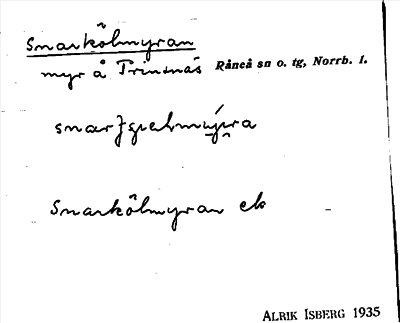 Snarkölmyran
myr å Trinsnäs Råneå sn o. tg, Norrb. l.
Snarkölmyran ek
ALRIK ISBERG 1935